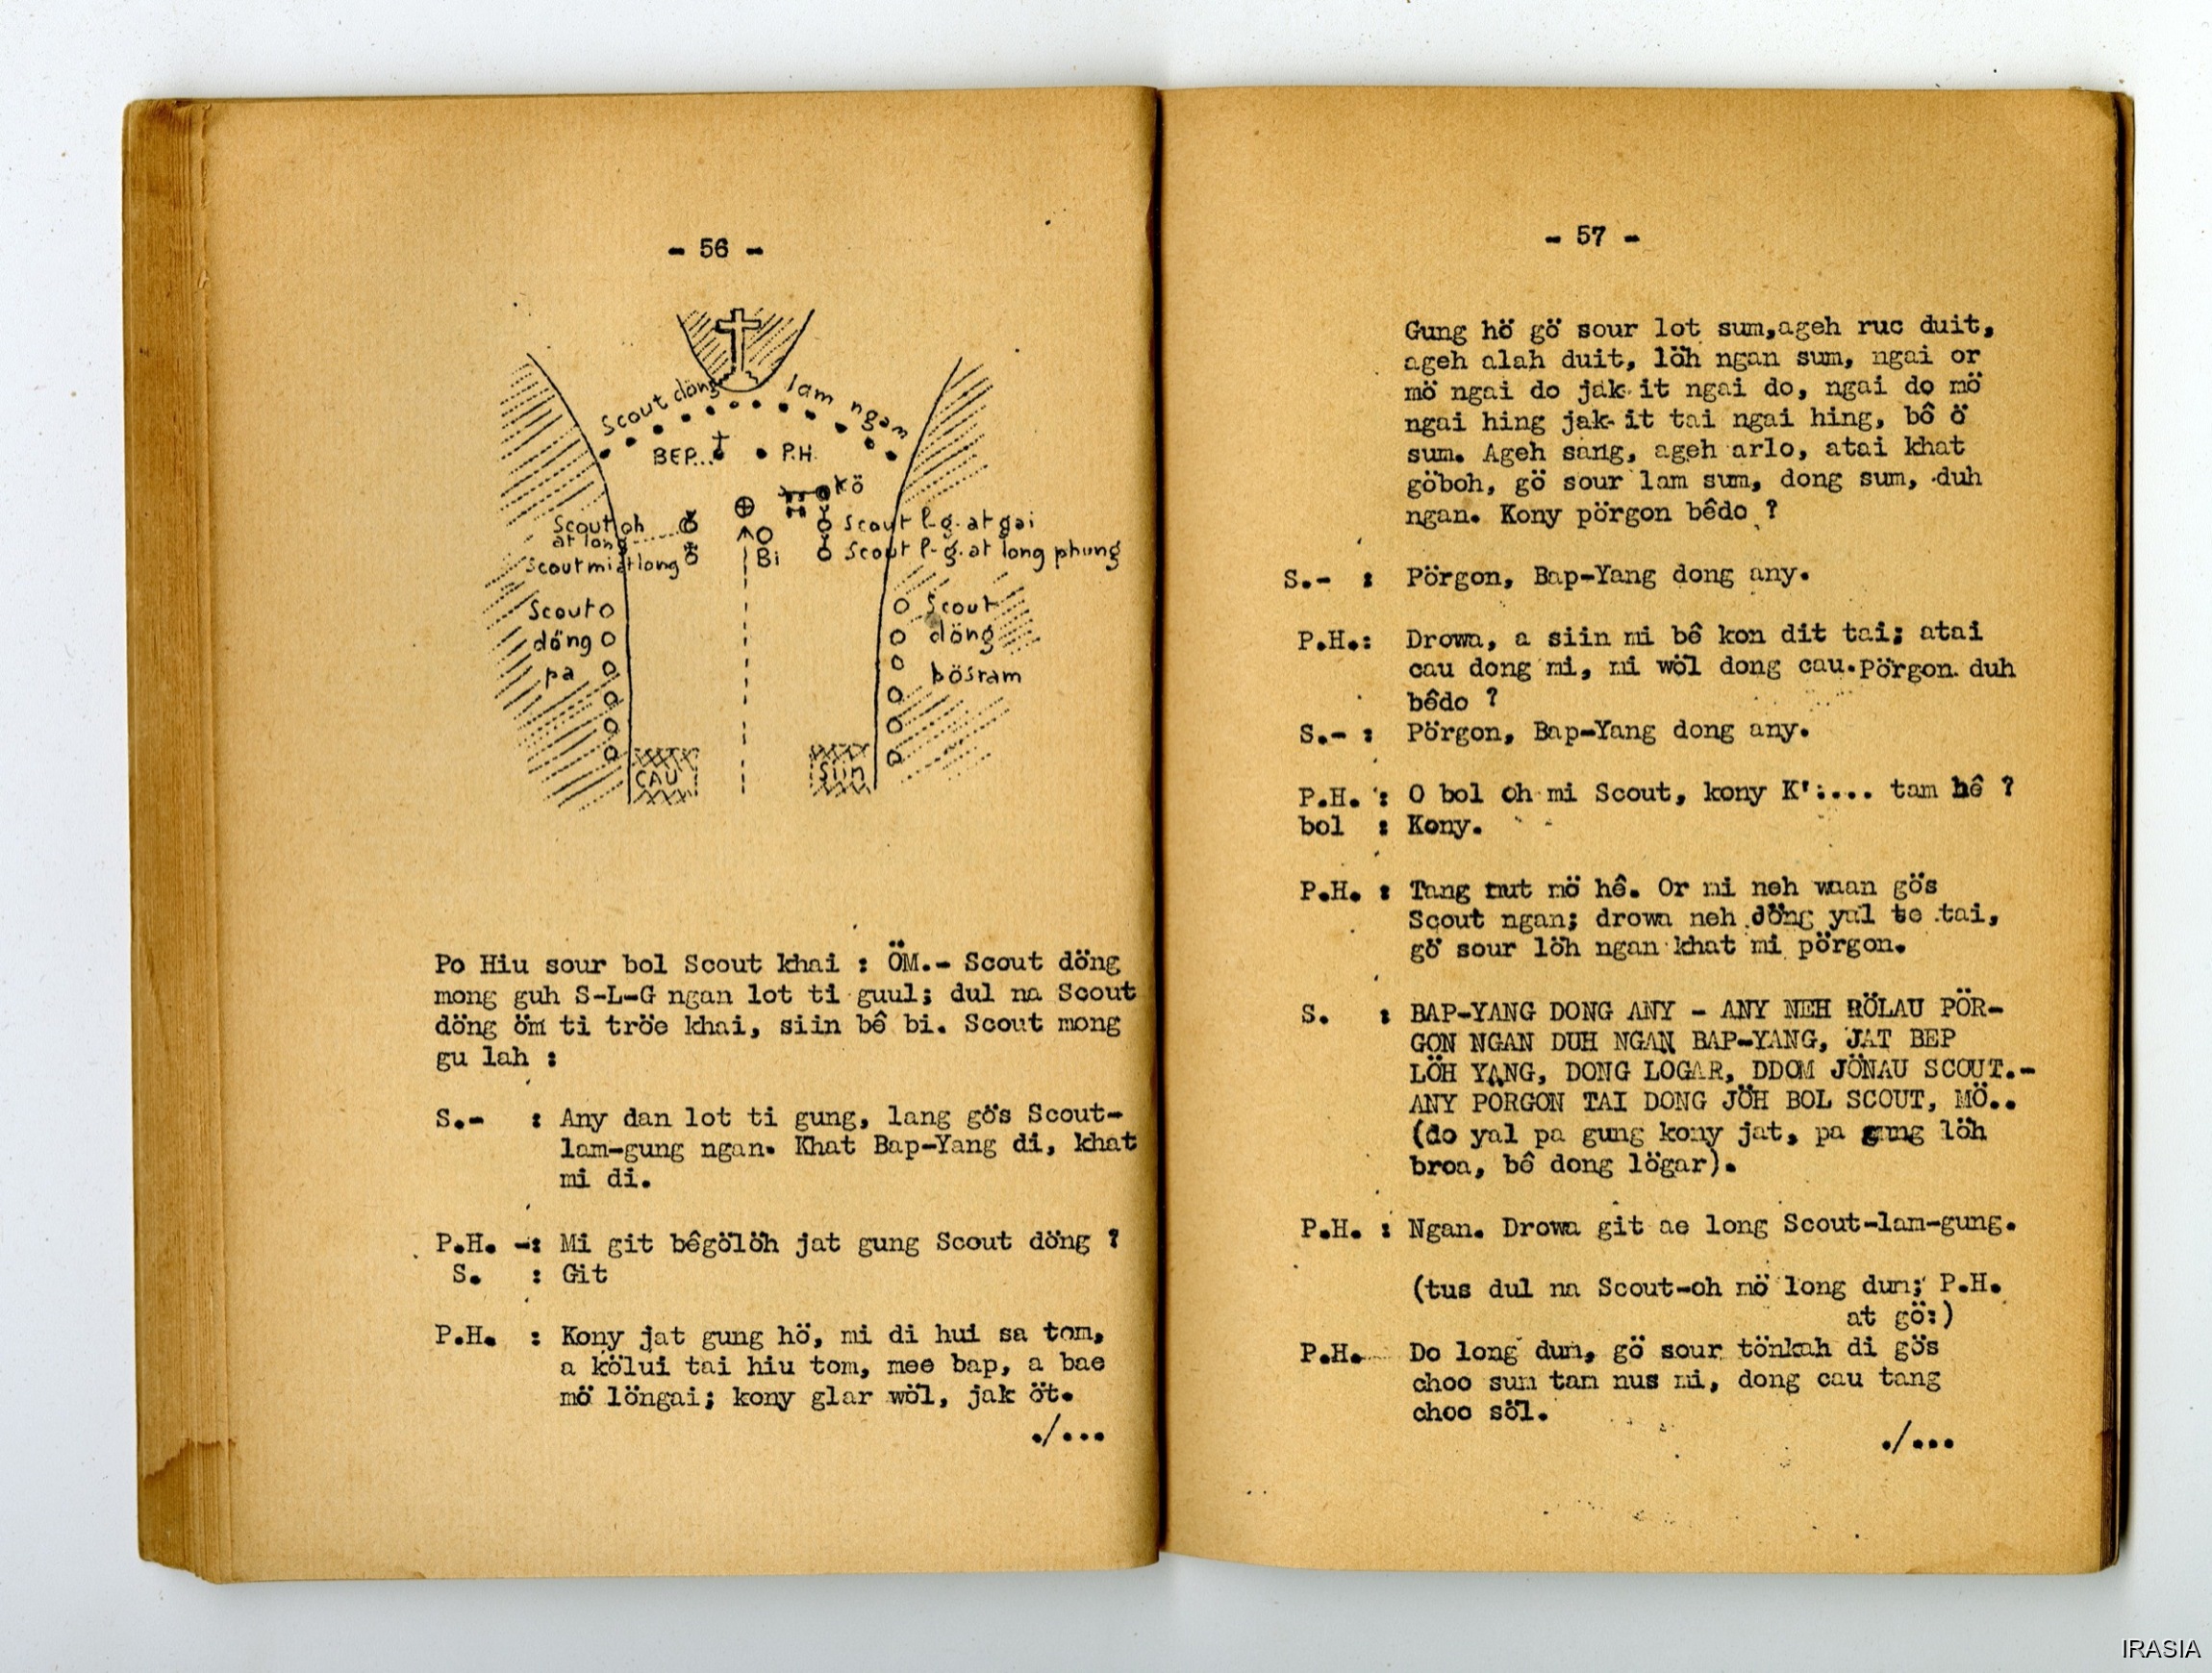 - 56 -
Scout döng lam ngam
BEP... P.H.
kö
Scout oh
at long
Scout l-g. at gai
Scout mi at long
Bi
Scout l-g. at long phung
Scout
döng
pa
Scout
döng
bösram
CAU
Siin
Po Hiu sour bol Scout khai : ÖM.- Scout döng
mong guh S-L-G ngan lot ti guul; dul na Scout
döng öm ti tröe khai, siin bê bi. Scout mong
gu lah :
S.- : Any dan lot ti gung, lang gös Scout-
lam-gung ngan. Khat Bap-Yang di, khat
mi di.
P.H. -: Mi git bêgölöh jat gung Scout döng ?
S. : Git
P.H. : Kony jat gung hö, mi di hui sa tom,
a kölui tai hiu tom, mee bap, a bae
mö löngai; kony glar wöl, jak öt.
./...
- 57 -
Gung hö gö sour lot sum,ageh ruc duit,
ageh alah duit, löh ngan sum, ngai or
mö ngai do jak it ngai do, ngai do mö
ngai hing jak it tai ngai hing, bô ö
sum. Ageh sang, ageh arlo, atai khat
göboh, gö sour lam sum, dong sum, duh
ngan. Kony pörgon bêdo ?
S.- : Pörgon, Bap-Yang dong any.
P.H.: Drowa, a siin mi bê kon dit tai; atai
cau dong mi, mi wöl dong cau.Pörgon duh
bêdo ?
S.- : Pörgon, Bap-Yang dong any.
P.H. : O bol oh mi Scout, kony K':... tam hê ?
bol : Kony.
P.H. : Tang mut mö hê. Or mi neh waan gös
Scout ngan; drowa neh döng yal te tai,
gö sour löh ngan khat mi pörgon.
S. : BAP-YANG DONG ANY - ANY NEH RÖLAU PÖR-
GON NGAN DUH NGAN BAP-YANG, JAT BEP
LÖH YANG, DONG LOGAR, DDOM JÖNAU SCOUT.-
ANY PORGON TAI DONG JÖH BOL SCOUT, MÖ..
(do yal pa gung kony jat, pa gung löh
broa, bê dong lögar).
P.H. : Ngan. Drowa git ae long Scout-lam-gung.
(tus dul na Scout-oh mö long dum; P.H.
at gö:)
P.H. Do long dum, gö sour tönkah di gös
choo sum tam nus mi, dong cau tang
choo söl.
./...
IRASIA